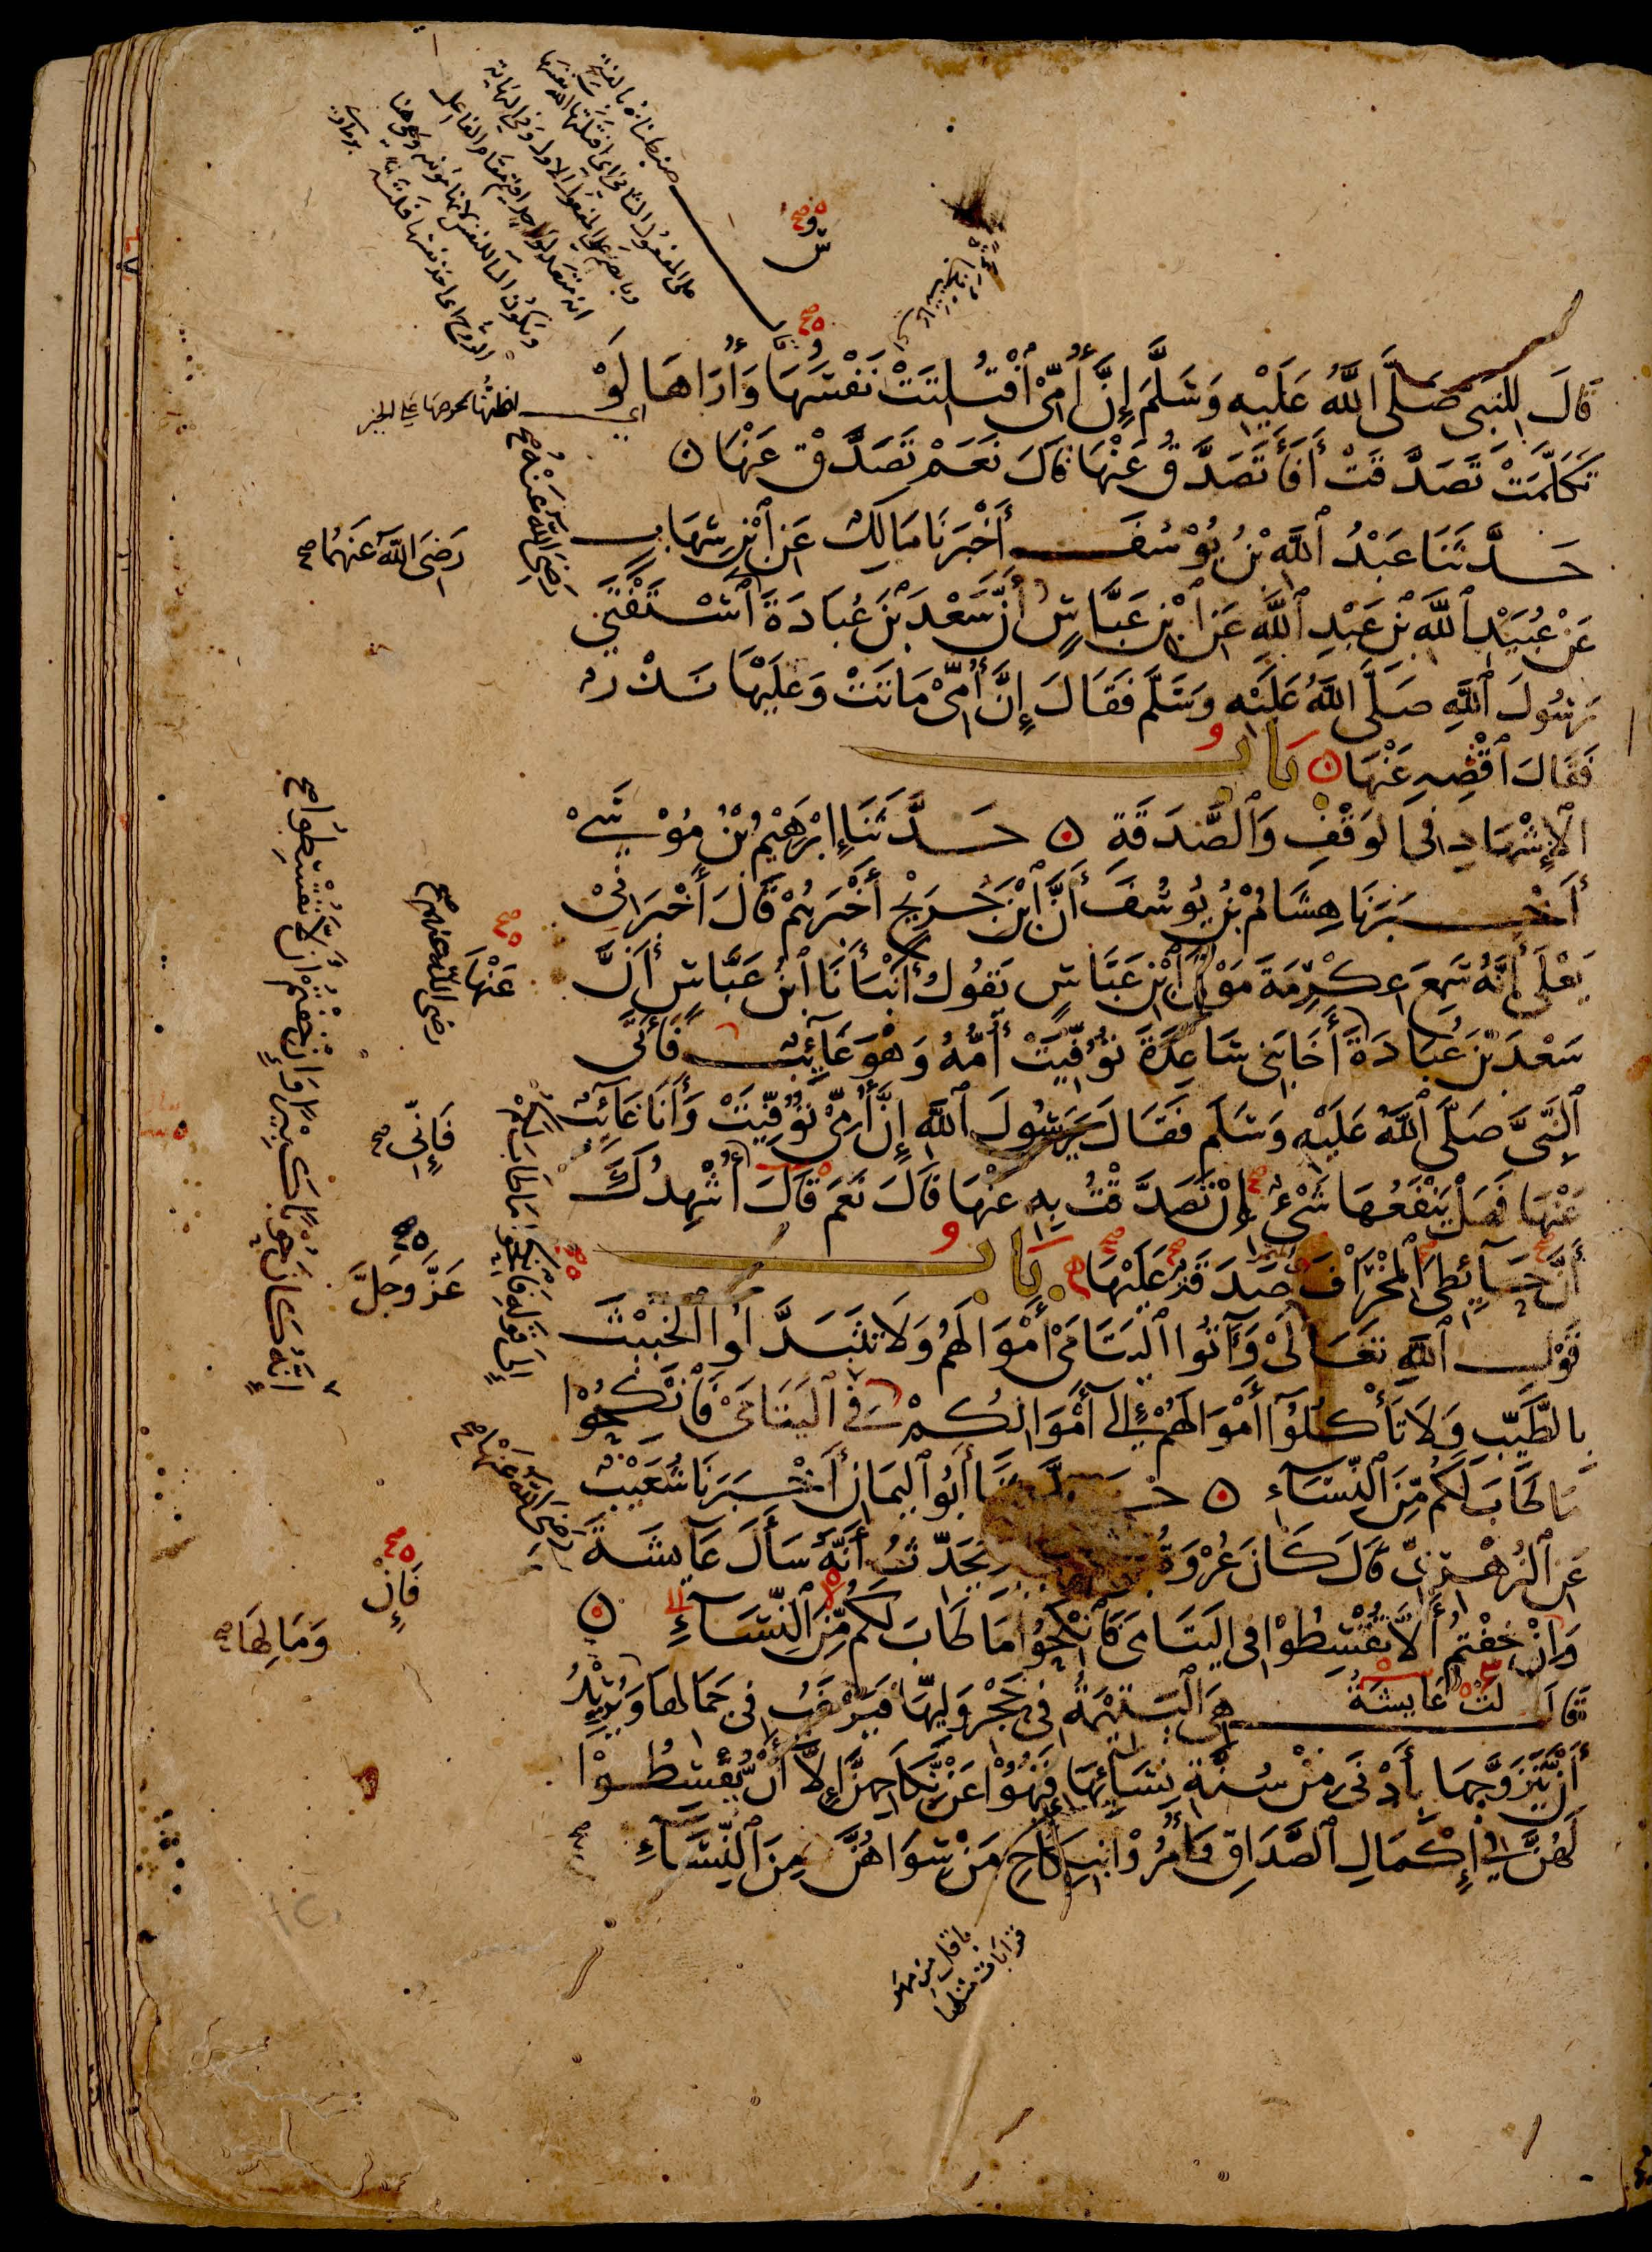 قَالَ لِلنَّبِيِّ صَلَّى اللَّهُ عَلَيْهِ وَسَلَّمَ إِنَّ أُمِّيْ افْتُلِتَتْ نَفْسُهَا وَأُرَاهَا لَوْ
تَكَلَّمَتْ تَصَدَّقَتْ أَفَأَتَصَدَّقُ عَنْهَا قَالَ نَعَمْ تَصَدَّقْ عَنْهَا
حَدَّثَنَا عَبْدُ اللَّهِ بْنُ يُوْسُفَ أَخْبَرَنَا مَالِكٌ عَنِ ابْنِ شِهَابٍ
عَنْ عُبَيْدِ اللَّهِ بْنِ عَبْدِ اللَّهِ عَنِ ابْنِ عَبَّاسٍ أَنَّ سَعْدَ بْنَ عُبَادَةَ اسْتَفْتَى
رَسُولَ اللَّهِ صَلَّى اللَّهُ عَلَيْهِ وَسَلَّمَ فَقَالَ إِنَّ أُمِّيْ مَاتَتْ وَعَلَيْهَا نَذْرٌ
فَقَالَ اقْضِهِ عَنْهَا بَابُ
الْإِشْهَادِ فِي الْوَقْفِ وَالصَّدَقَةِ حَدَّثَنَا إِبْرَهِيْمُ بْنُ مُوْسَىْ
أَخْبَرَنَا هِشَامُ بْنُ يُوسُفَ أَنَّ ابْنَ جُرَيْجٍ أَخْبَرَهُمْ قَالَ أَخْبَرَنِيْ
يَعْلَى أَنَّهُ سَمِعَ عِكْرِمَةَ مَوْلَى ابْنِ عَبَّاسٍ يَقُولُ أَنْبَأَنَا ابْنُ عَبَّاسٍ أَنَّ
سَعْدَ بْنَ عُبَادَةَ أَخَا بَنِي سَاعِدَةَ تُوُفِّيَتْ أُمُّهُ وَهْوَ غَائِبٌ فَأَتَى
النَّبِيَّ صَلَّى اللَّهُ عَلَيْهِ وَسَلَّمَ فَقَالَ يَرَسُولَ اللَّهِ إِنَّ أُمِّيْ تُوُفِّيَتْ وَأَنَا غَائِبٌ
عَنْهَا فَهَلْ يَنْفَعُهَا شَيْءٌ إِنْ تَصَدَّقْتُ بِهِ عَنْهَا قَالَ نَعَمْ قَالَ أُشْهِدُكَ
أَنَّ حَائِطِيَ الْمِخْرَافَ صَدَقَةٌ عَلَيْهَا بَابُ
قَوْلِ اللَّهِ تَعَالَىْ وَآتُوا الْيَتَامَىْ أَمْوَالَهُمْ وَلَا تَتَبَدَّلُوا الْخَبِيْثَ
بِالطَّيِّبِ وَلَا تَأْكُلُوْا أَمْوَالَهُمْ إِلَى أَمْوَالِكُمْ فِي الْيَتَامَىْ فَانْكِحُوْا
مَا طَابَ لَكُمْ مِنَ النِّسَاءِ حَدَّثَنَا أَبُو الْيَمَانِ أَخْبَرَنَا شُعَيْبٌ
عَنِ الزُّهْرِيِّ قَالَ كَانَ عُرْوَةُ يُحَدِّثُ أَنَّهُ سَأَلَ عَائِشَةَ
وَإِنْ خِفْتُمْ أَلَّا تُقْسِطُوْا فِي الْيَتَامَى فَانْكِحُوا مَا طَابَ لَكُمْ مِنَ النِّسَاءِ
قَالَتْ عَائِشَةُ هِيَ الْيَتِيْمَةُ فِي حَجْرِ وَلِيِّهَا فَيَرْغَبُ فِي جَمَالِهَا وَيُرِيْدُ
أَنْ يَتَزَوَّجَهَا بِأَدْنَى مِنْ سُنَّةِ نِسَائِهَا فَنُهُوْا عَنْ نِكَاحِهِنَّ إِلَّا أَنْ يُقْسِطُوْا
لَهُنَّ فِي إِكْمَالِ الصَّدَاقِ وَأُمِرُوْا بِنِكَاحِ مَنْ سِوَاهُنَّ مِنَ النِّسَاءِ
رَضِيَ اللَّهُ عَنْهُ صح
رَضِيَ اللَّهُ عَنْهُمَا صح
عَنْهَا
رضي الله عنهم صح
فَإِنِّي صح
عَزَّ وَجَلَّ
إِنَّهُ كَانَ حُوبًا كَبِيرًا وَإِنْ خِفْتُمْ أَنْ لَا تُقْسِطُوا صح
إِلَى قَوْلِهِ فَانْكِحُوا مَا طَابَ لَكُمْ
رَضِيَ اللَّهُ عَنْهَا صح
فَإِنْ
وَمَالِهَا صح